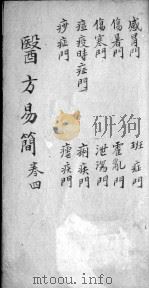 感冒門 班症門
傷暑門 霍亂門
傷寒門 泄瀉門
瘟疫時症門 痢疾門
痧症門 瘧疾門
醫方易簡 卷四
mtoou.info